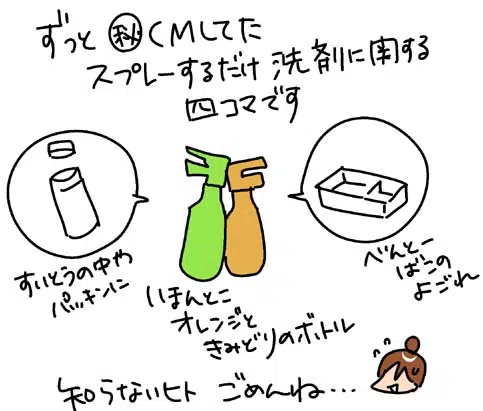 ずっと ㊙CMしてた
スプレーするだけ 洗剤に関する
四コマです
すいとうの中や
パッキンに
いほんとこ
オレンジと
きみどりのボトル
べんとー
ばこの
よごれ
知らないヒト ごめんね…